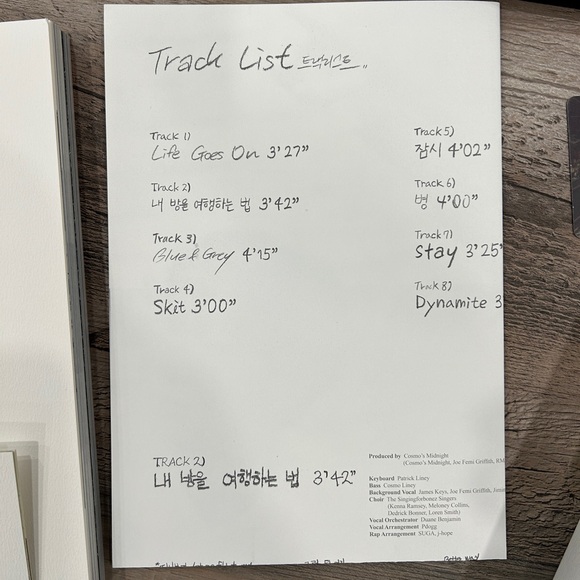 Track List 트랙리스트..
Track 1)
Life Goes On 3'27"
Track 2)
내 방을 여행하는 법 3'42"
Track 3)
Blue & Grey 4'15"
Track 4)
Skit 3'00"
Track 5)
잠시 4'02"
Track 6)
병 4'00"
Track 7)
Stay 3'25"
Track 8)
Dynamite 3
TRACK 2)
내 방을 여행하는 법 3'42"
Produced by Cosmo's Midnight
(Cosmo's Midnight, Joe Femi Griffith, RM
Keyboard Patrick Liney
Bass Cosmo Liney
Background Vocal James Keys, Joe Femi Griffith,
Choir The Singingforbonez Singers
(Kenna Ramsey, Meloney Collins,
Dedrick Bonner, Loren Smith)
Vocal Orchestrator Duane Benjamin
Vocal Arrangement Pdogg
Rap Arrangement SUGA, j-hope